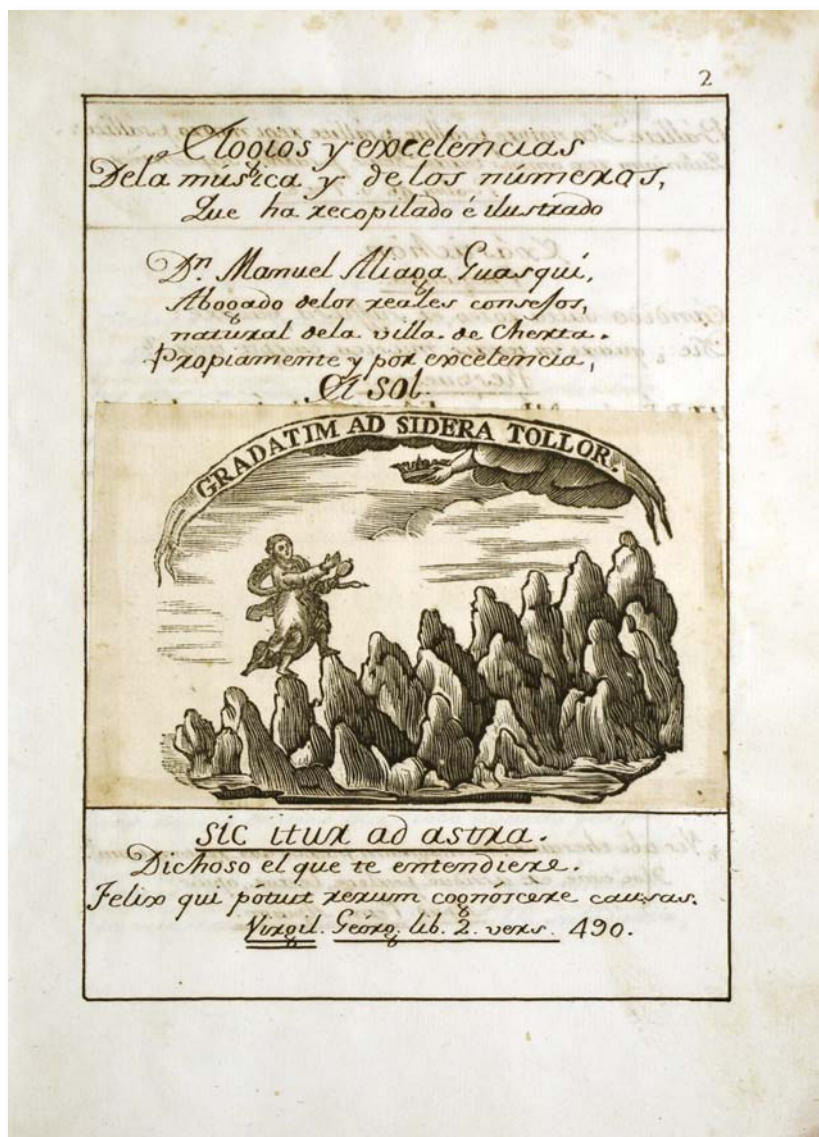 2
Elogios y excelencias
Dela música y de los números,
Que ha recopilado é ilustrado
Dn. Manuel Aliaga Guasqui,
Abogado delos reales consejos,
natural dela villa de Cherta.
Propiamente y por excelencia,
El Sol.
GRADATIM AD SIDERA TOLLOR.
Sic itur ad astra.
Dichoso el que te entendiere.
Felix qui pótuit rerum cognóscere causas.
Virgil. Geórg. lib. 2. vers. 490.